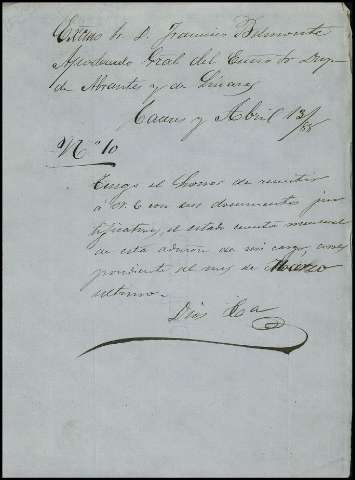 Excmo Sr. D. Francisco Belmonte
Apoderado Gral del Excmo Sr. Duq.
de Abrantes y de Linares
Caceres y Abril 13/88
Nº 10
Tengo el honor de remitir
á V. E con sus documentos jus
tificativos, el estado cuenta mensual
de esta admon de mi cargo, corres
pondiente al mes de Marzo
ultimo.
Dios &a